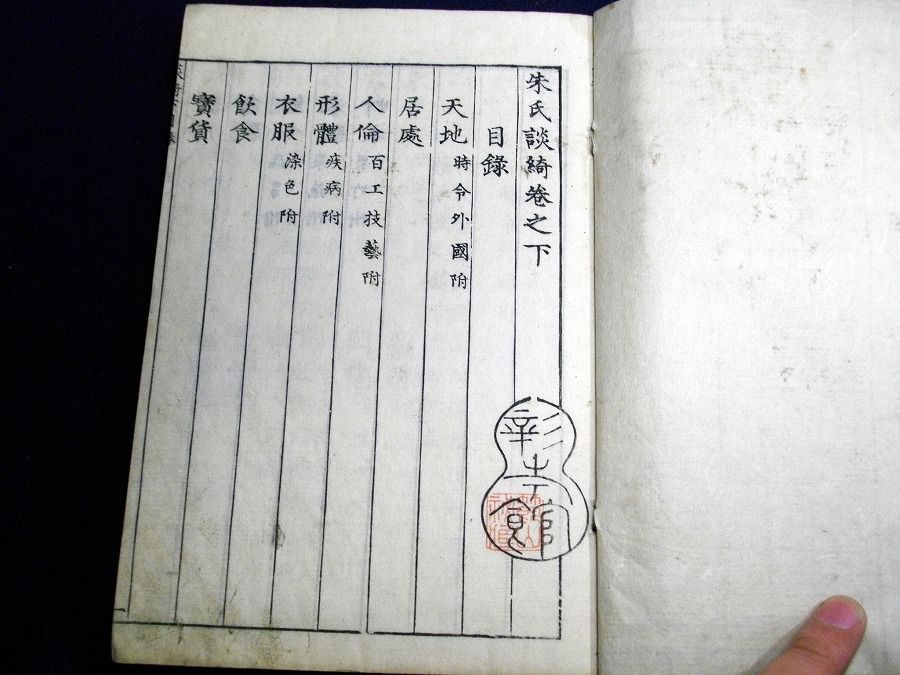 朱氏談綺卷之下
目錄
天地 時令外國附
居處
人倫 百工技藝附
形體 疾病附
衣服 染色附
飲食
寶貨
彰考館